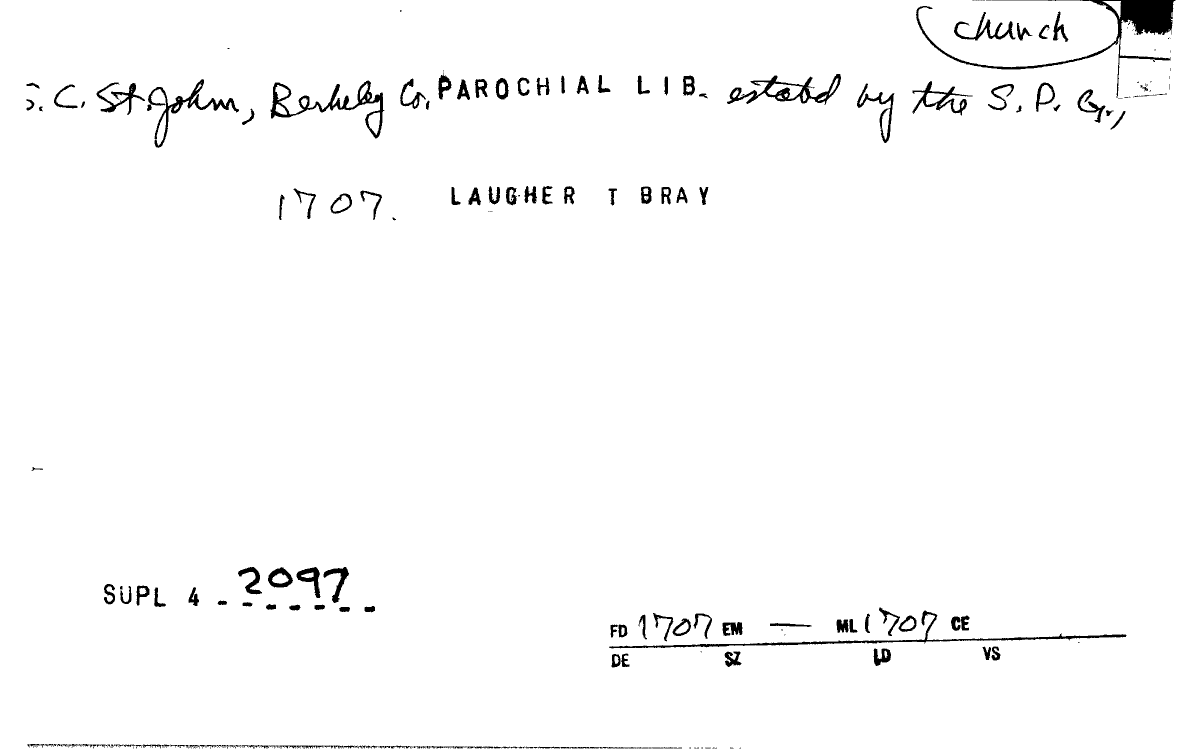 church
S. C. St. John, Berkeley Co. PAROCHIAL LIB. estabd by the S. P. G.,
1707. LAUGHER T BRAY
SUPL 4 2097
FD 1707 EM — ML 1707 CE
DE SZ LD VS